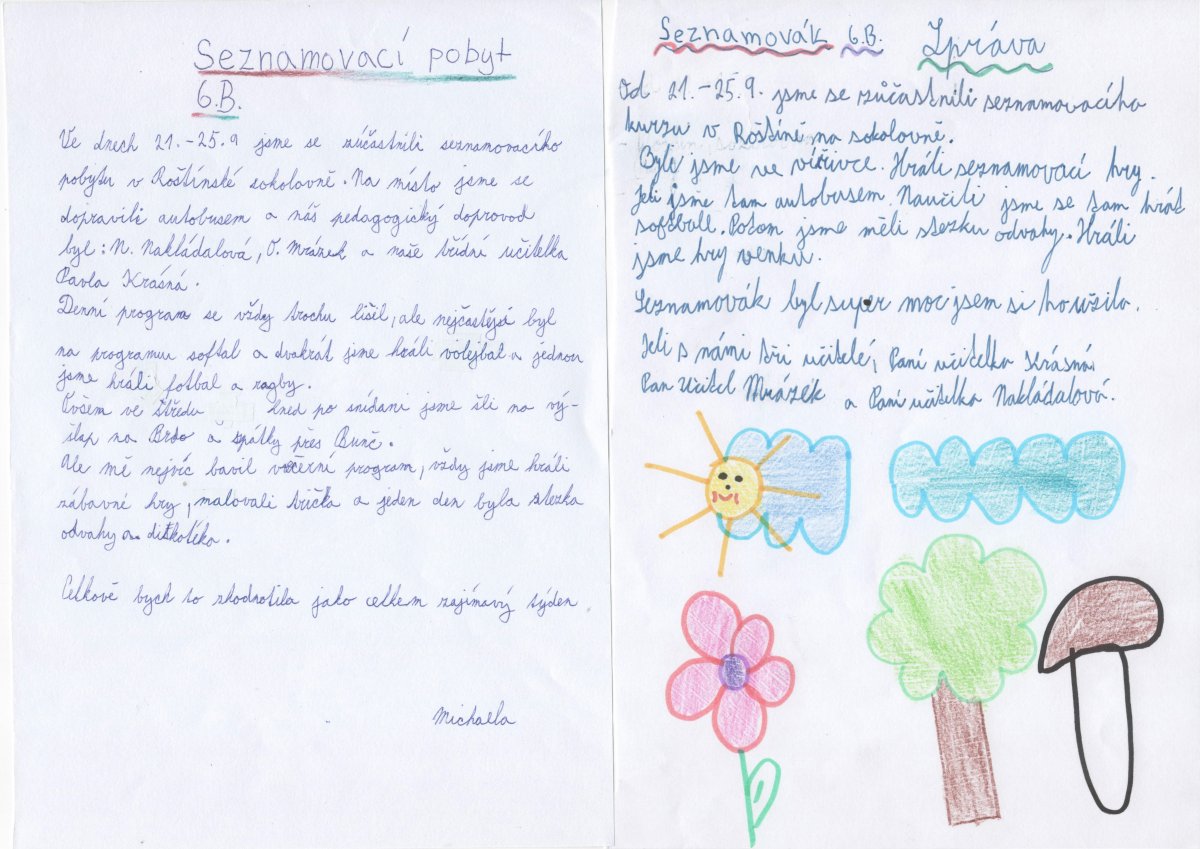 Seznamovací pobyt
6.B.
Ve dnech 21.-25.9 jsme se zúčastnili seznamovacího
pobytu v Roštínské sokolovně. Na místo jsme se
dopravili autobusem a náš pedagogický doprovod
byl: N. Nakládalová, O. Mrázek a naše třídní učitelka
Pavla Krásná.
Denní program se vždy trochu lišil, ale nejčastější byl
na programu softal a dvakrát jsme hráli volejbal a jednou
jsme hráli fotbal a ragby.
Pošem ve středu hned po snídani jsme šli na vý-
šlap na Brdo a zpátky přes Bunč.
Ale mě nejvíc bavil večerní program, vždy jsme hráli
zábavné hry, malovali trička a jeden den byla stezka
odvahy a diskotéka.
Celkově bych to zhodnotila jako celkem zajímavý týden
Michaela
Seznamovák 6.B. Zpráva
Od 21.-25.9. jsme se zůčastnili seznamovacího
kurzu v Roštíně na sokolovně.
Byli jsme ve vířivce. Hráli seznamovací hry.
Jeli jsme tam autobusem. Naučili jsme se tam hrát
softball. Potom jsme měli stezku odvahy. Hráli
jsme hry venku.
Seznamovák byl super moc jsem si ho užila.
Jeli s námi tři učitelé, Paní učitelka Krásná
Pan Učitel Mrázek a Paní učitelka Nakládalová.